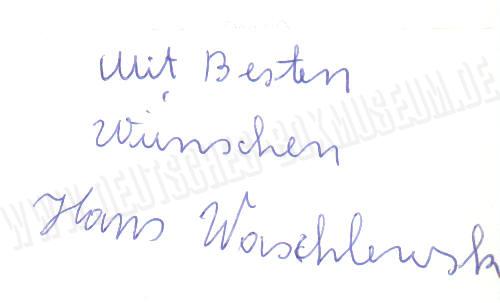 Mit Besten
Wünschen
Hans Waschlewsk
WWW.DEUTSCHES-BOXMUSEUM.DE